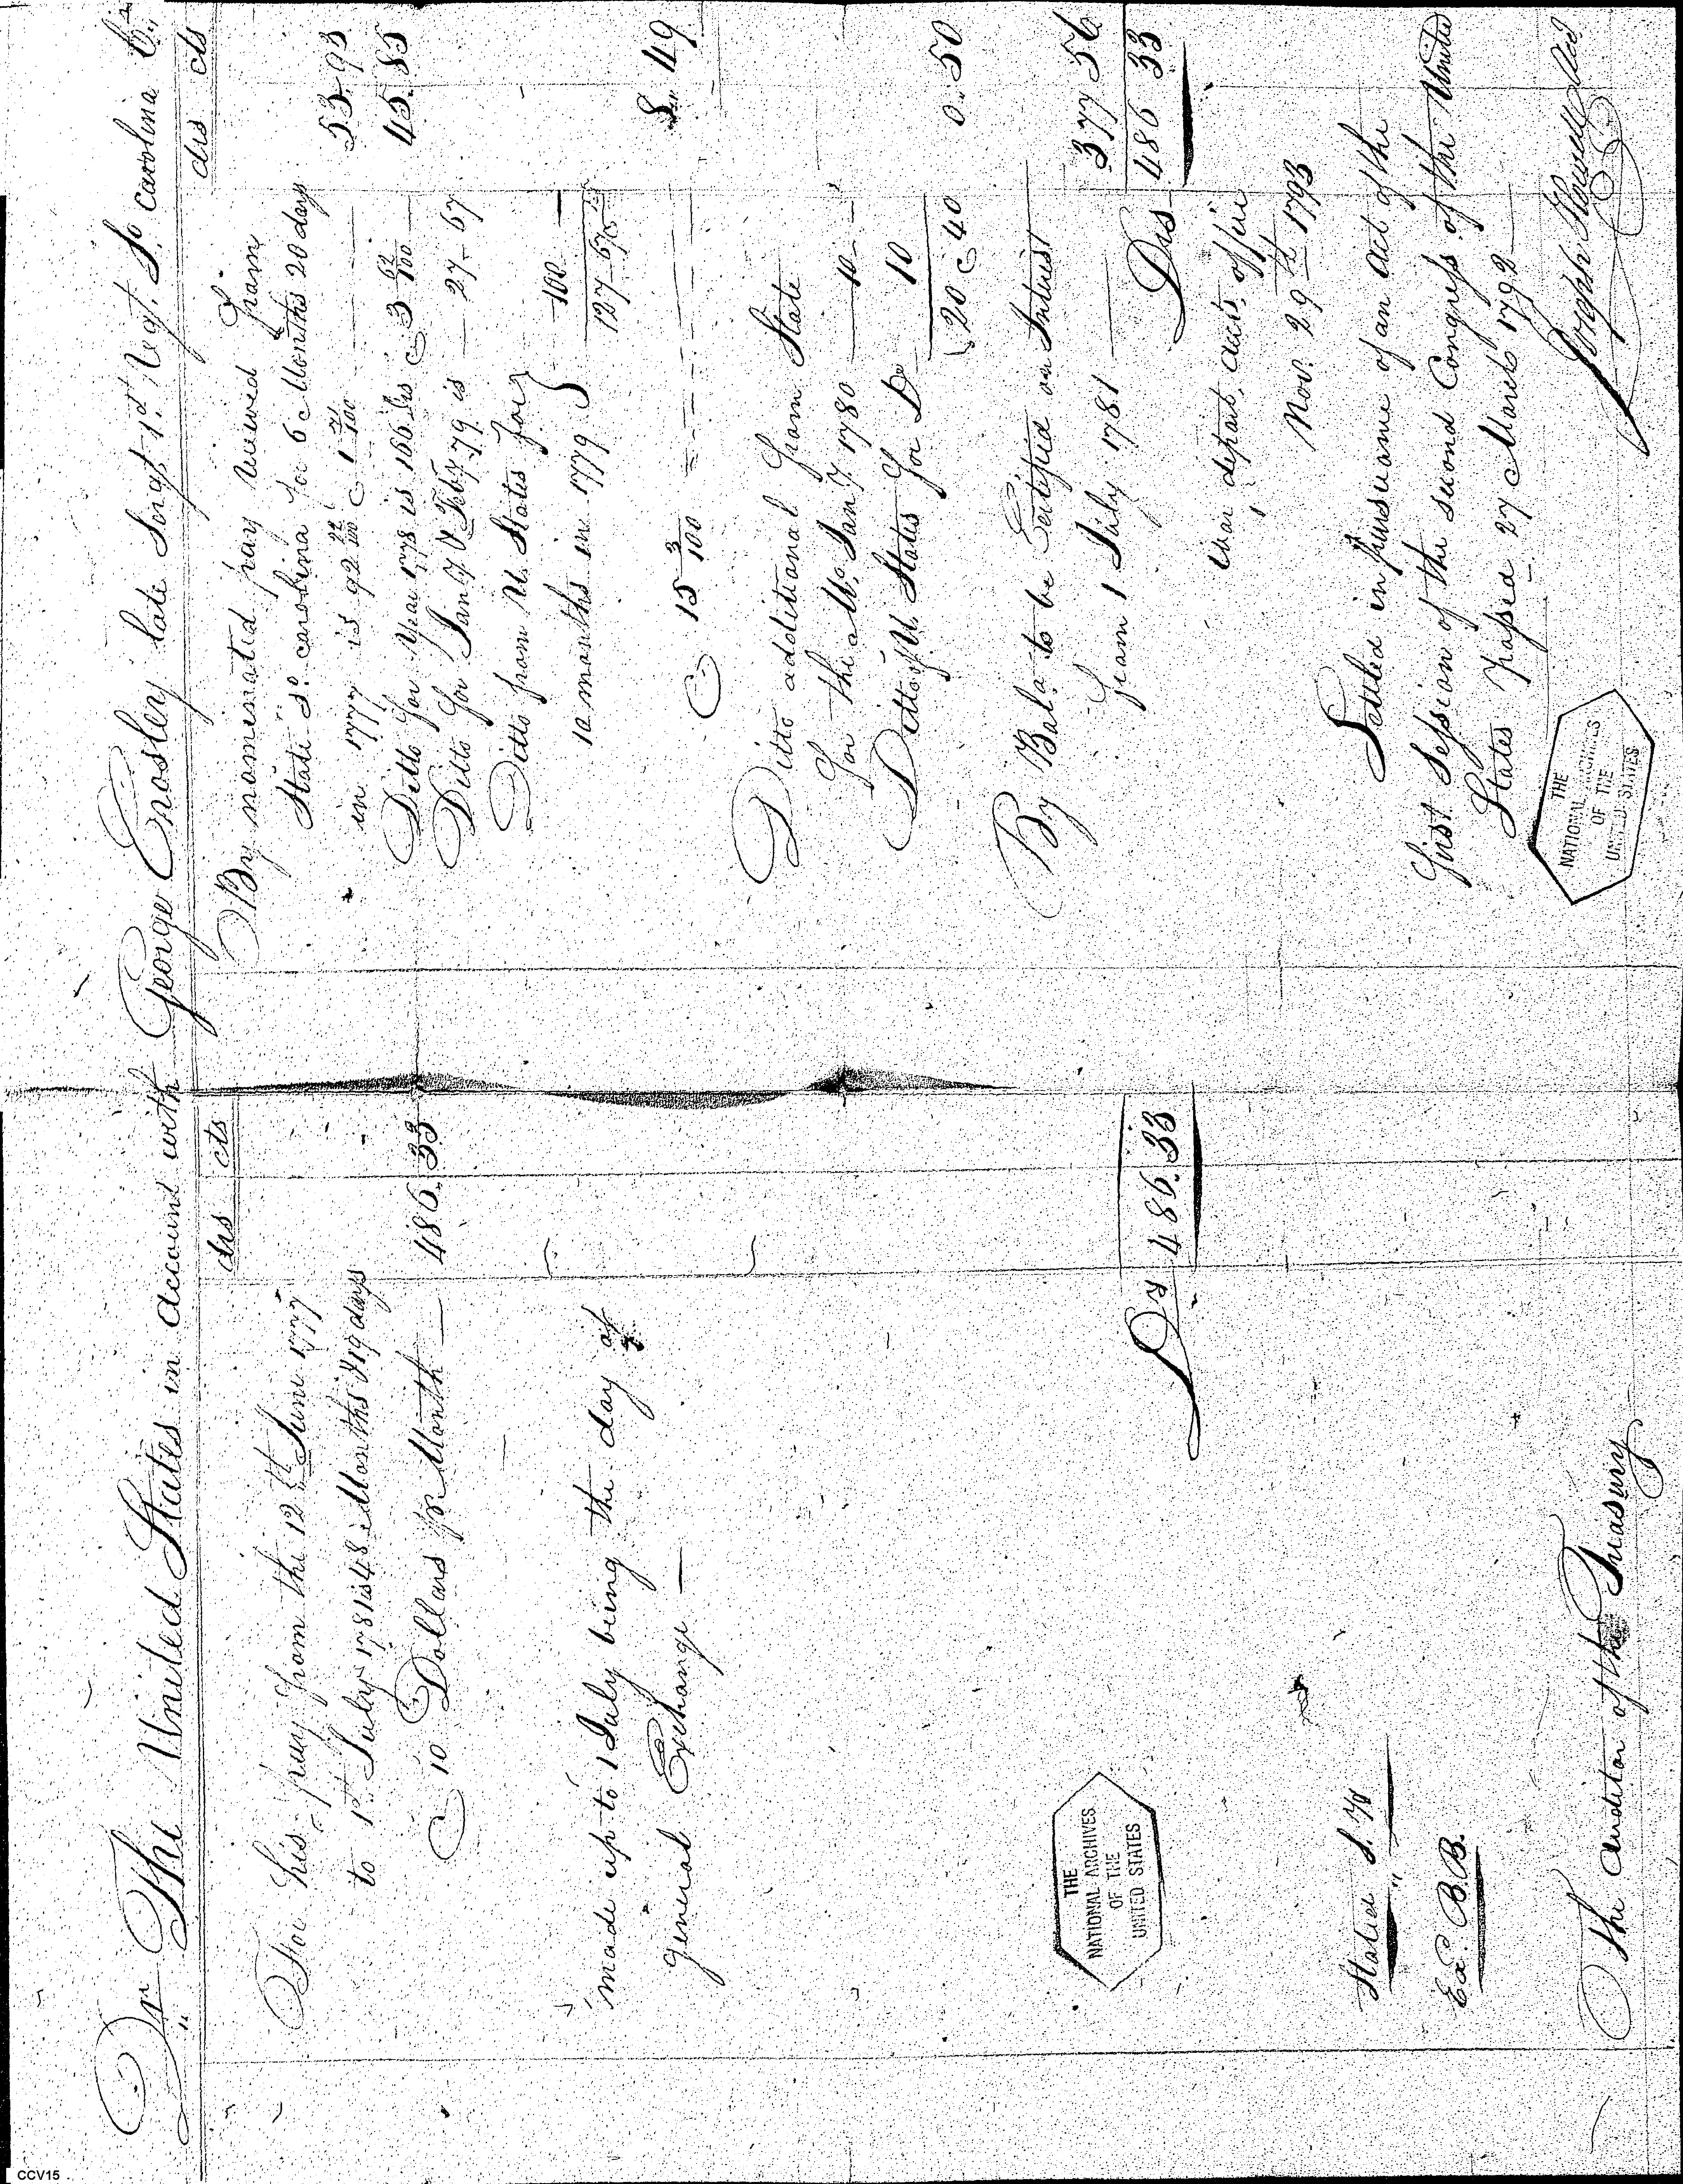 Dr The United States in account with George Ensley late Sergt 1st Regt So carolina Cr
drs cts
For his pay from the 12th June 1777
to 1st July 1781 is 48 Months & 19 days
@ 10 Dollars pr Month — 486.33
made up to 1 July being the day of
general Exchange —
Ds 486.33
THE
NATIONAL ARCHIVES
OF THE
UNITED STATES
Stated
Ex. B.B.
The Auditor of the Treasury
drs cts
By nominated pay received from
State So carolina for 6 Months 20 days
in 1777 is 92 22/100 @ 1 71/100 — 53.93
Ditto for Year 1778 is 166 drs @ 3 62/100 — 45.85
Ditto for Jany & Feby 79 is — 27-67
Ditto from U. States for }
10 months in 1779 } — 100 —
127-67
@ 15 3/100 — 8.49
Ditto additional from State
for the Mo. Jany 1780 — 10 —
Ditto of U. States for Do 10
20 @ 40 0.50
By Bala to be Certified on Interest
from 1 July 1781 — 377 56
Drs 486 33
war depart. accts. office
Nov. 29th 1793
Settled in pursuance of an act of the
first Session of the second Congress of the United
States passed 27 March 1792
Joseph Howell
THE
NATIONAL ARCHIVES
OF THE
UNITED STATES
CCV15